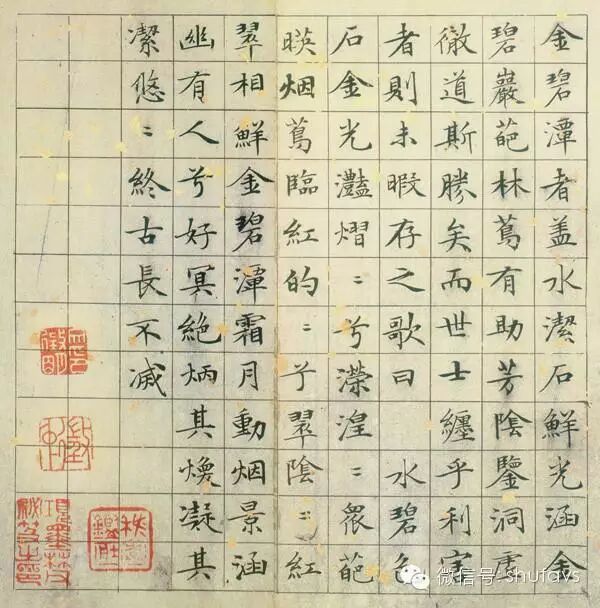 金碧潭者盖水潔石鮮光涵金
碧巖葩林蔦有助芳陰鑒洞虛
徹道斯勝矣而世士纏乎利害
者則未暇存之歌曰 水碧色
石金光灩熠〻兮濴湟〻衆葩
暎烟蔦臨紅的〻兮翠陰〻紅
翠相鮮金碧潭霜月動烟景涵
幽有人兮好冥絶炳其煥凝其
潔悠〻終古長不滅
項墨林父
祕笈之印
微信号: shufavs